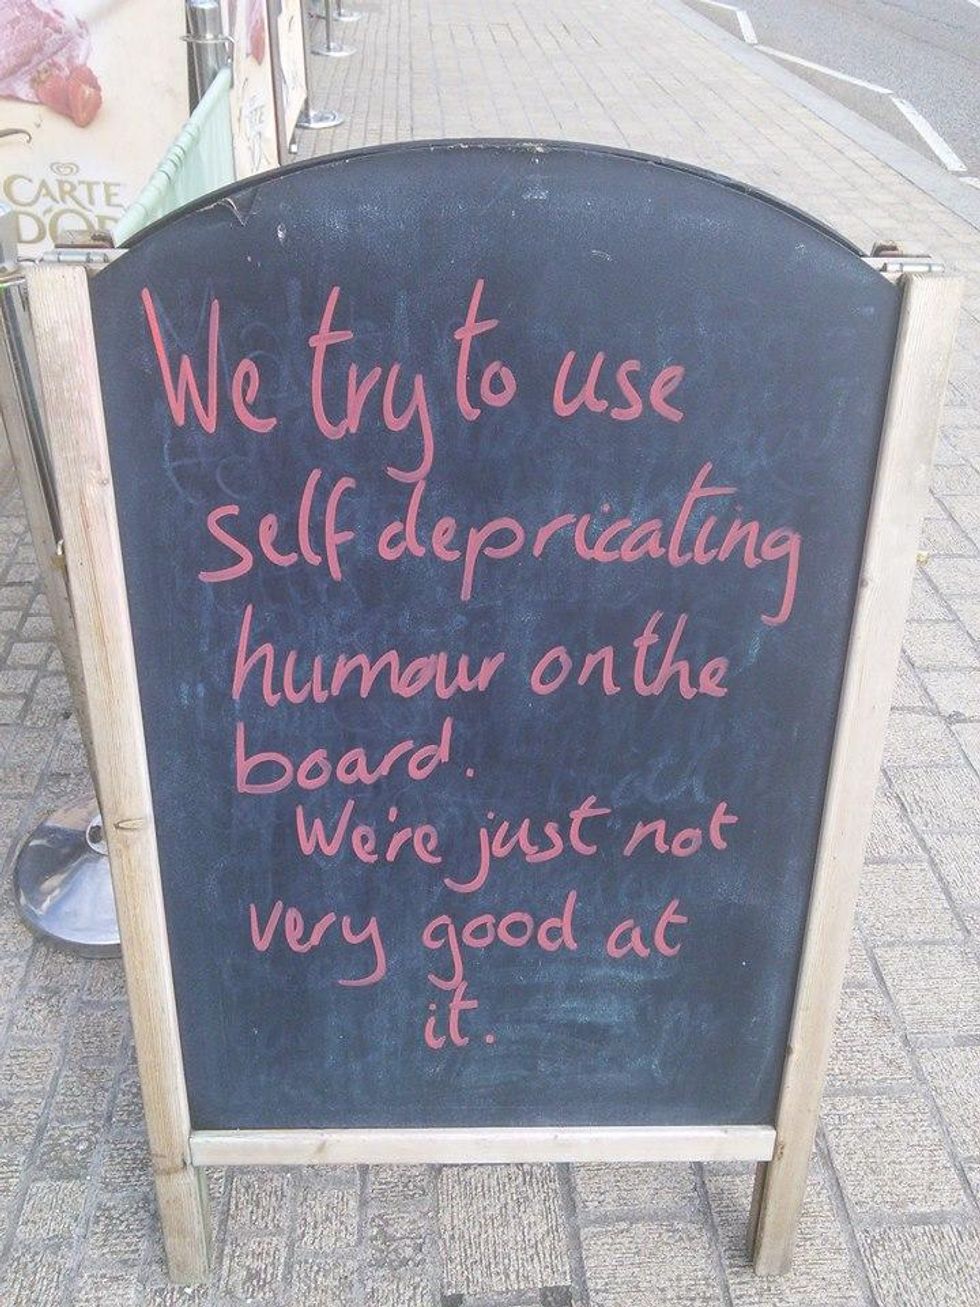 CARTE
D'OR
We try to use
self depricating
humour on the
board.
We're just not
very good at
it.